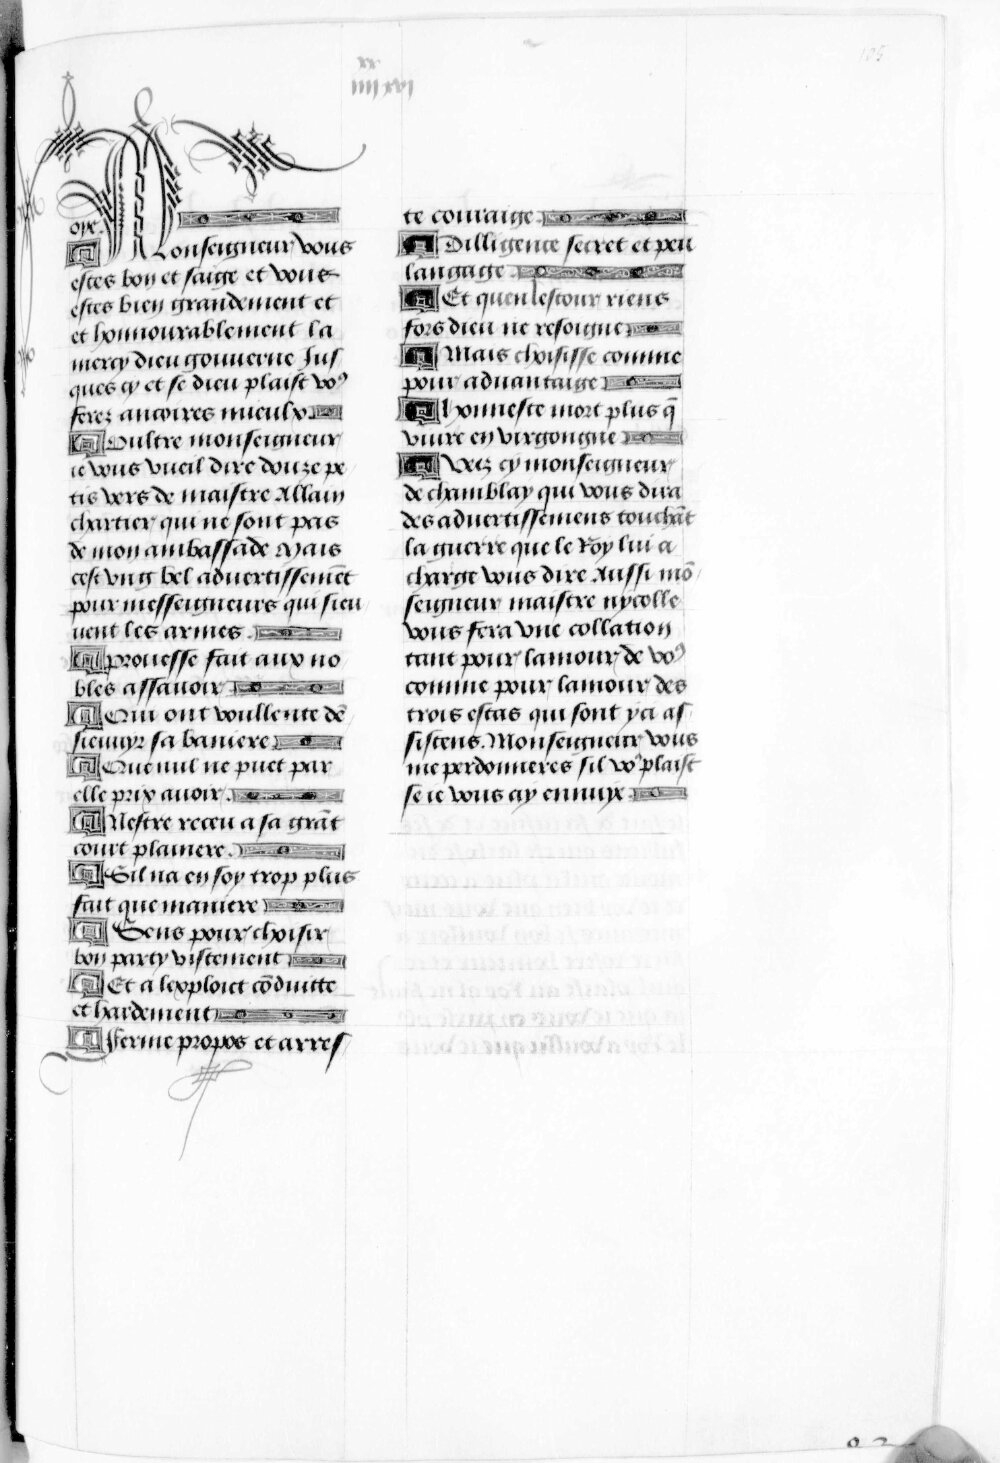 105
xx
iiii xvi
oye.
Monseigneur vous
estes bon et saige et vous
estes bien grandement et
et honnourablement la
mercy dieu gouverne Jus
ques cy et se dieu plaist vo9
ferez ancoires mieulx
Oultre monseigneur
ie vous vueil dire douze pe
tis vers de maistre Allain
chartier qui ne sont pas
de mon ambassade Mais
cest vng bel aduertissemēt
pour messeigneurs qui sieu
uent les armes.
prouesse fait aux no
bles assauoir
Qui ont voullente dē
sieuuyr sa baniere
Que nul ne puet par
elle prix auoir.
Nestre receu a sa grāt
court planiere.
Sil na en soy trop plus
fait que maniere
Sens pour choisir
bon party vistement
Et a lexploict cōduitte
et hardement
fferme propos et arres
te couraige
Dilligence secret et peu
langage
Et quen lestour riens
fors dieu ne resoigne
Mais choisisse comme
pour aduantaige
lhonneste mort plus q̄
viure en virgongne
Veez cy monseigneur
de chamblay qui vous dira
des aduertissemens touchāt
la guerre que le Roy lui a
charge vous dire Aussi mō
seigneur maistre nycolle
vous fera vne collation
tant pour lamour de vo9
comme pour lamour des
trois estas qui sont ya as
sistens. Monseigneur vous
me perdonneres sil vo9 plaist
se ie vous ay ennuye